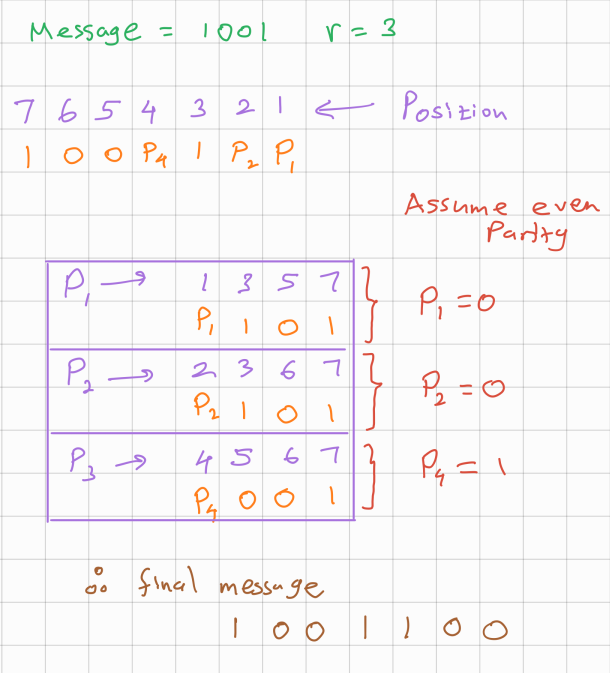 Message = 1001 r = 3
7 6 5 4 3 2 1 ← Position
1 0 0 P₄ 1 P₂ P₁
Assume even
Parity
P₁ → 1 3 5 7
P₁ 1 0 1
P₁ = 0
P₂ → 2 3 6 7
P₂ 1 0 1
P₂ = 0
P₃ → 4 5 6 7
P₄ 0 0 1
P₄ = 1
∴ final message
1 0 0 1 1 0 0